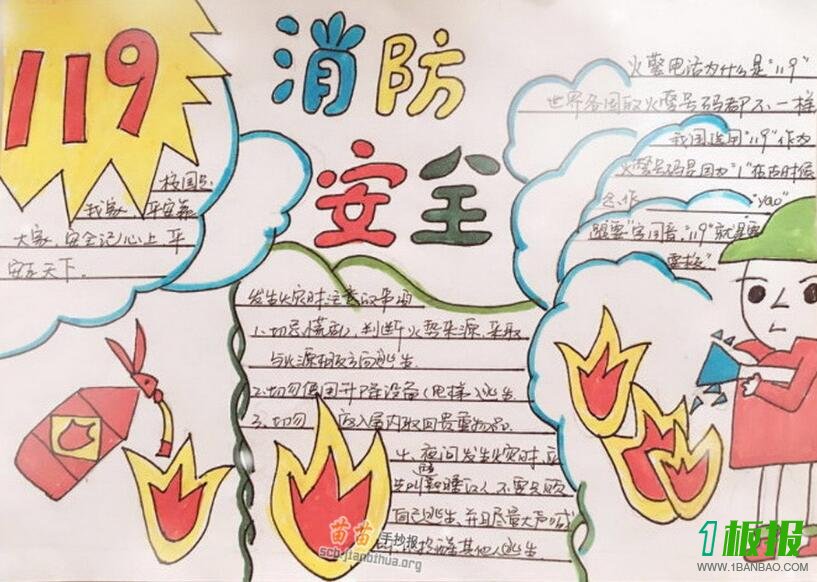 119
消防
安全
校园是
我家，平安靠
大家，安全记心上，平
安在天下。
发生火灾时注意的事项
1、切忌慌乱，判断火势来源，采取
与火源相反方向逃生
2、切勿使用升降设备(电梯)逃生
3、切勿 返入屋内取回贵重物品。
4、夜间发生火灾时，应
叫醒熟睡的人，不要只顾
自己逃生，并且尽量大声喊
其他人逃生
火警电话为什么是"119"
世界各国取火警号码都不一样
我国选用"119"作为
火警号码是因为"1"在古时候
念作 "yao"
跟"要"字同音，"119"就是要
要救"
苗苗手抄报
scb.jianbihua.org
1板报
WWW.1BANBAO.COM